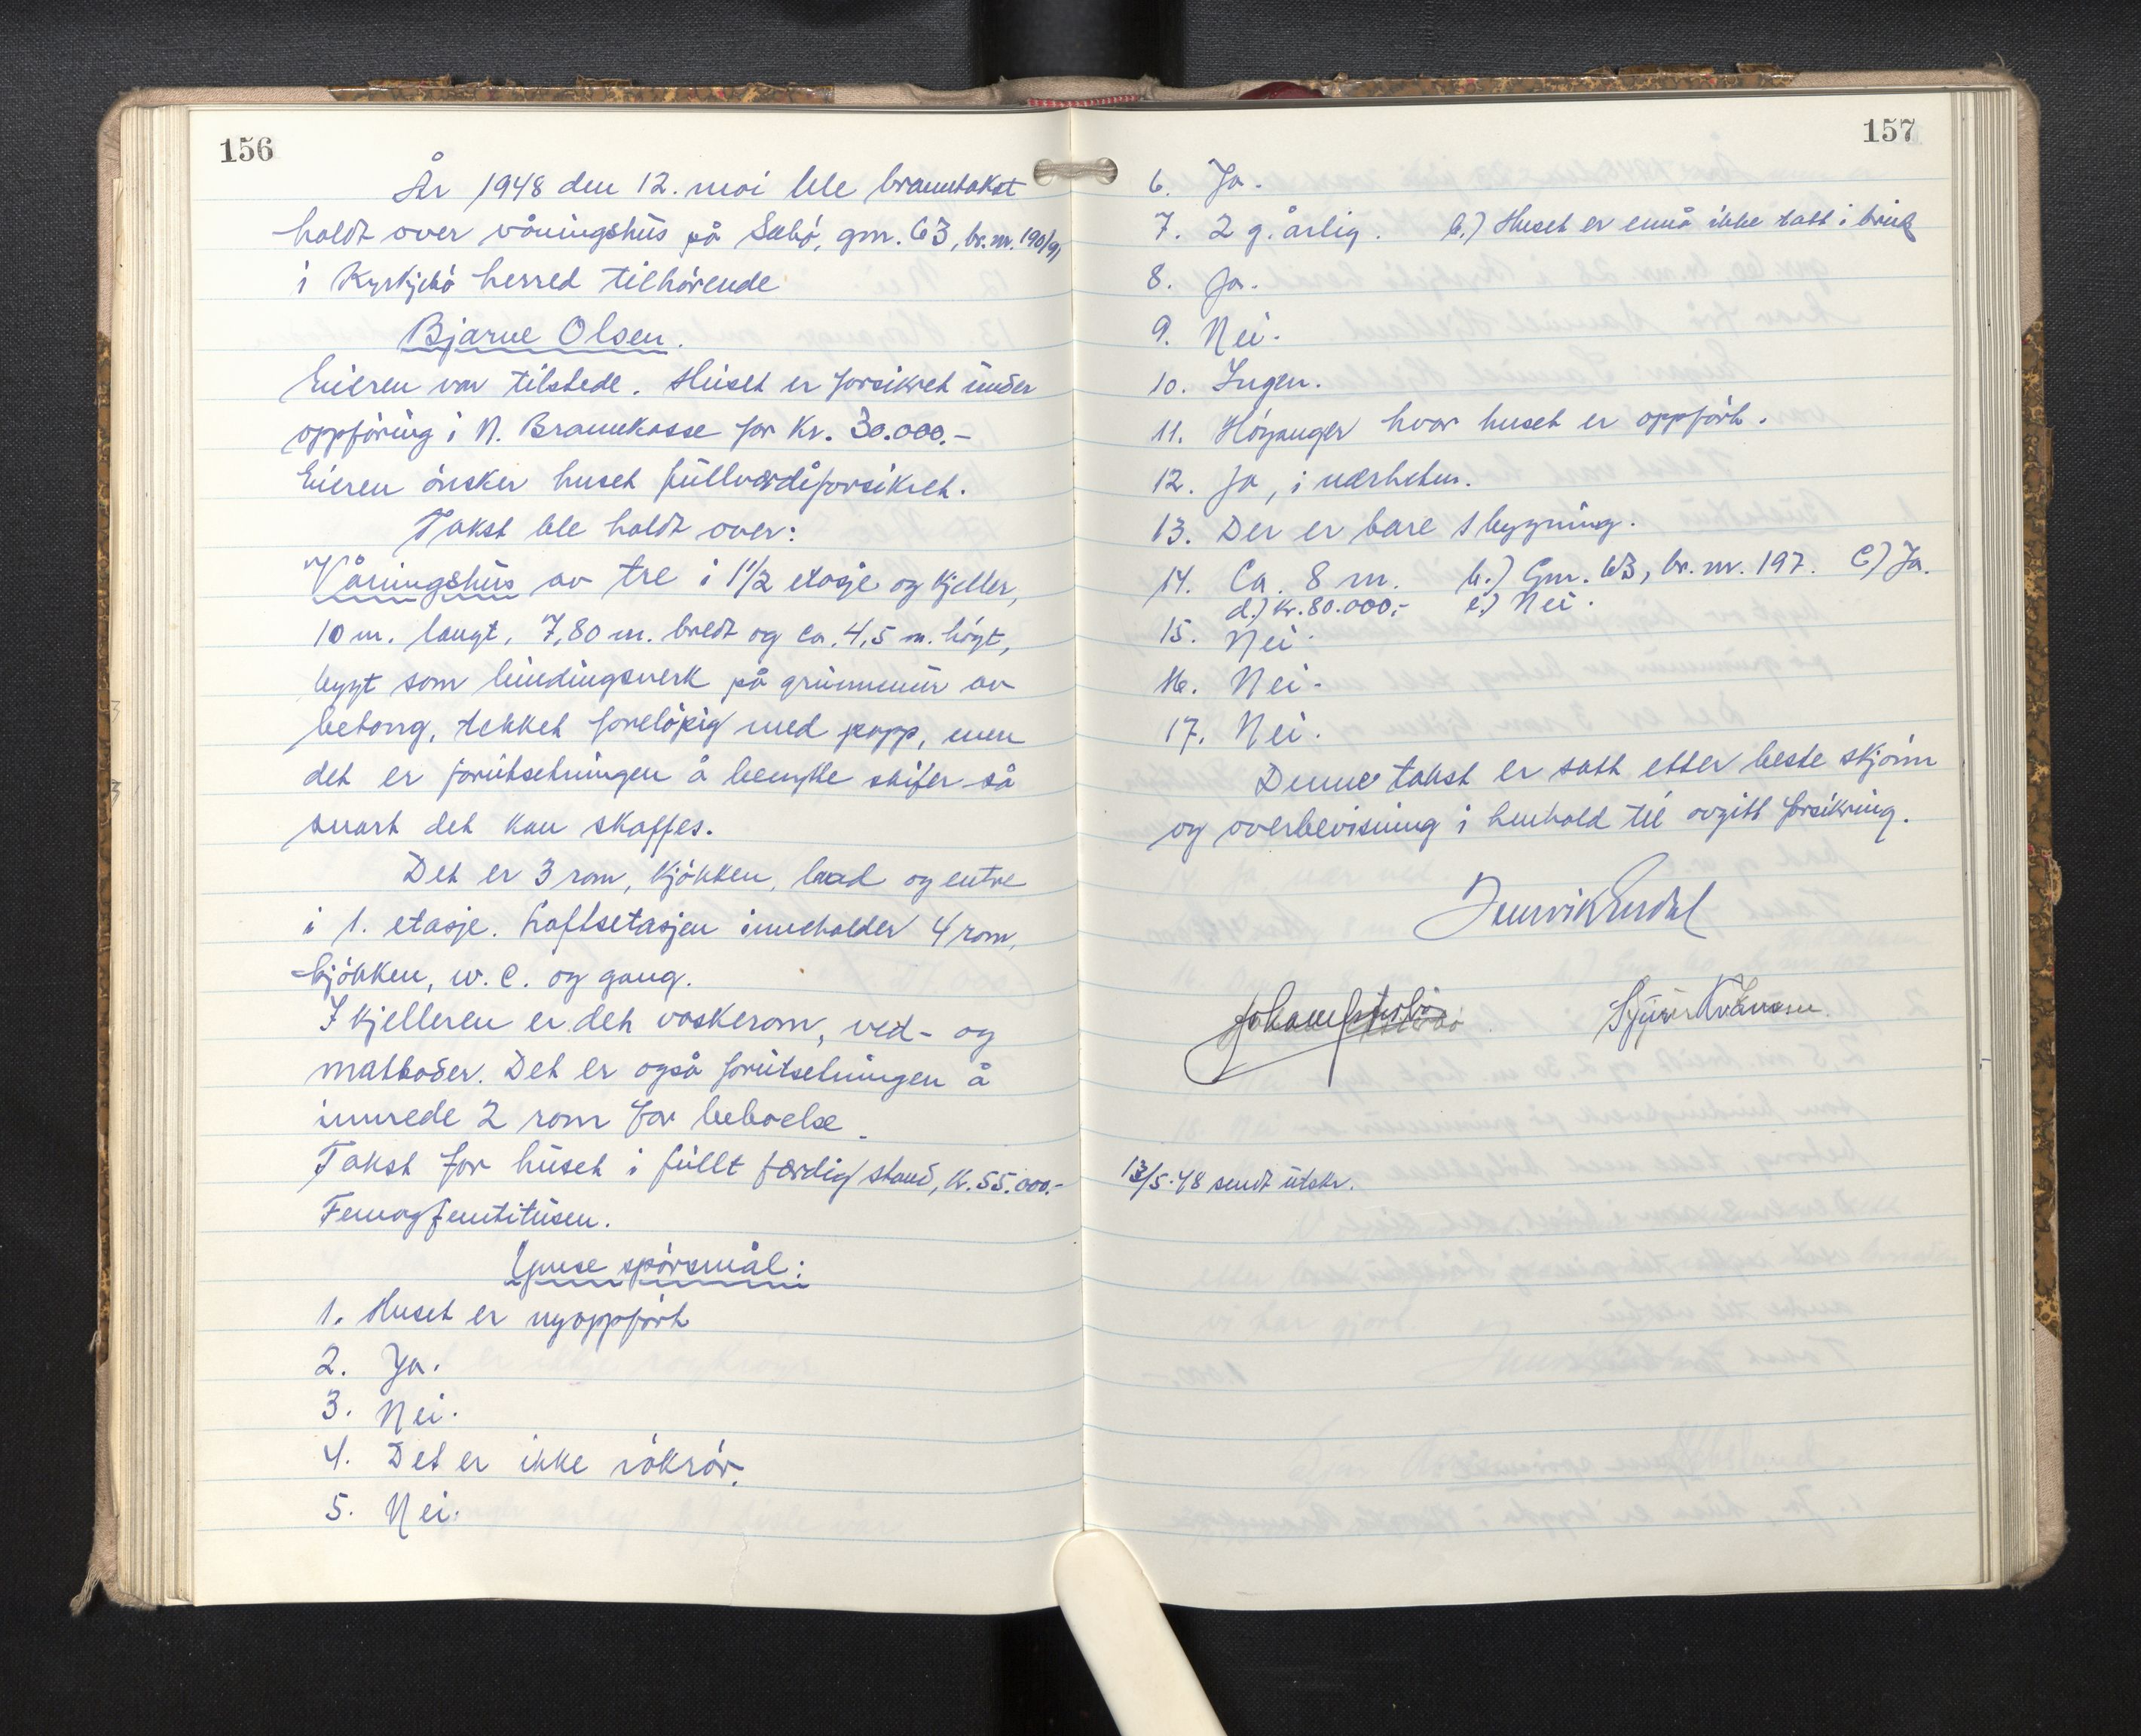 156
År 1948 den 12. mai ble branntakst
holdt over våningshus på Sæbó, gnr. 63, br. nr. 190/9,
i Kyrkjebó herred tilhórende
Bjarne Olsen.
Eieren var tilstede. Huset er forsikret under
oppfóring i N. Brannkasse for Kr. 30.000.-
Eieren ónsker huset fullverdiforsikret.
Takst ble holdt over:
Våningshus av tre i 1 1/2 etasje og kjeller,
10 m. langt, 7,80 m. bredt og ca. 4,5 m. hógt,
bygt som bindingsverk på grunnmur av
betong, tekket forelópig med papp, men
det er forutsetningen å benytte skifer så
snart det kan skaffes.
Det er 3 rom, kjókken, bad og entre
i 1. etasje. Loftsetasjen inneholder 4 rom,
kjókken, w. c. og gang.
I kjelleren er det vaskerom, ved- og
matboder. Det er også forutsetningen å
innrede 2 rom for beboelse.
Takst for huset i fullt færdig stand, kr. 55.000.-
Femogfemtitusen.
Ymse spórsmål:
1. Huset er nyoppfórt
2. Ja.
3. Nei.
4. Det er ikke rókrór.
5. Nei.
157
6. Ja.
7. 2 g. årlig. b.) Huset er ennå ikke tatt i bruk
8. Ja.
9. Nei.
10. Ingen.
11. Hóyanger hvor huset er oppfórt.
12. Ja, i nærheten.
13. Der er bare 1 bygning.
14. Ca. 8 m. b.) Gnr. 63, br. nr. 197. C) Ja.
d.) kr. 80.000,- e.) Nei.
15. Nei.
16. Nei.
17. Nei.
Denne takst er satt etter beste skjónn
og overbevisning i henhold til avgitt forsikring.
13/5-48 sendt utskr.